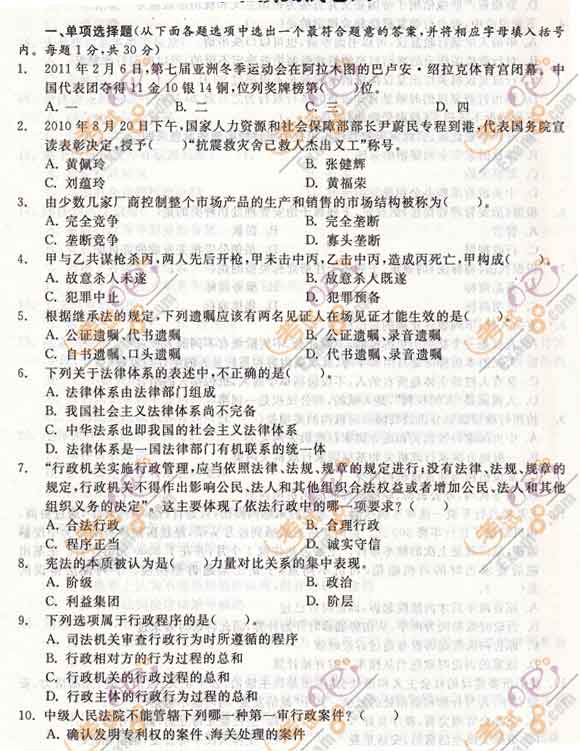 一、单项选择题(从下面各题选项中选出一个最符合题意的答案,并将相应字母填入括号
内。每题1分,共30分)
1. 2011年2月6日,第七届亚洲冬季运动会在阿拉木图的巴卢安·绍拉克体育宫闭幕。中
国代表团夺得11金10银14铜,位列奖牌榜第( )位。
A. 一 B. 二 C. 三 D. 四
2. 2010年8月20日下午,国家人力资源和社会保障部部长尹蔚民专程到港,代表国务院宣
读表彰决定,授予( )“抗震救灾舍己救人杰出义工”称号。
A. 黄佩玲 B. 张健辉
C. 刘蕴玲 D. 黄福荣
3. 由少数几家厂商控制整个市场产品的生产和销售的市场结构被称为( )。
A. 完全竞争 B. 完全垄断
C. 垄断竞争 D. 寡头垄断
4. 甲与乙共谋枪杀丙,两人先后开枪,甲未击中丙,乙击中丙,造成丙死亡,甲构成( )。
A. 故意杀人未遂 B. 故意杀人既遂
C. 犯罪中止 D. 犯罪预备
5. 根据继承法的规定,下列遗嘱应该有两名见证人在场见证才能生效的是( )。
A. 公证遗嘱、代书遗嘱 B. 公证遗嘱、录音遗嘱
C. 自书遗嘱、口头遗嘱 D. 代书遗嘱、录音遗嘱
6. 下列关于法律体系的表述中,不正确的是( )。
A. 法律体系由法律部门组成
B. 我国社会主义法律体系尚不完备
C. 中华法系也即我国的社会主义法律体系
D. 法律体系是一国法律部门有机联系的统一体
7. “行政机关实施行政管理,应当依照法律、法规、规章的规定进行;没有法律、法规、规章的
规定,行政机关不得作出影响公民、法人和其他组织合法权益或者增加公民、法人和其他
组织义务的决定”。这主要体现了依法行政中的哪一项要求?( )
A. 合法行政 B. 合理行政
C. 程序正当 D. 诚实守信
8. 宪法的本质被认为是( )力量对比关系的集中表现。
A. 阶级 B. 政治
C. 利益集团 D. 阶层
9. 下列选项属于行政程序的是( )。
A. 司法机关审查行政行为时所遵循的程序
B. 行政相对方的行为过程的总和
C. 行政机关的行政过程的总和
D. 行政主体的行政行为过程的总和
10. 中级人民法院不能管辖下列哪一种第一审行政案件?( )
A. 确认发明专利权的案件、海关处理的案件